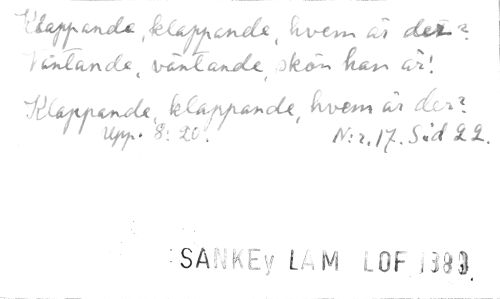 Klappande, klappande, hvem är der?
Väntande, väntande, skön han är!
Klappande, klappande, hvem är der?
Upp. 8: 20. N:r. 17. Sid 22.
SANKEy LAM LOF 1883.